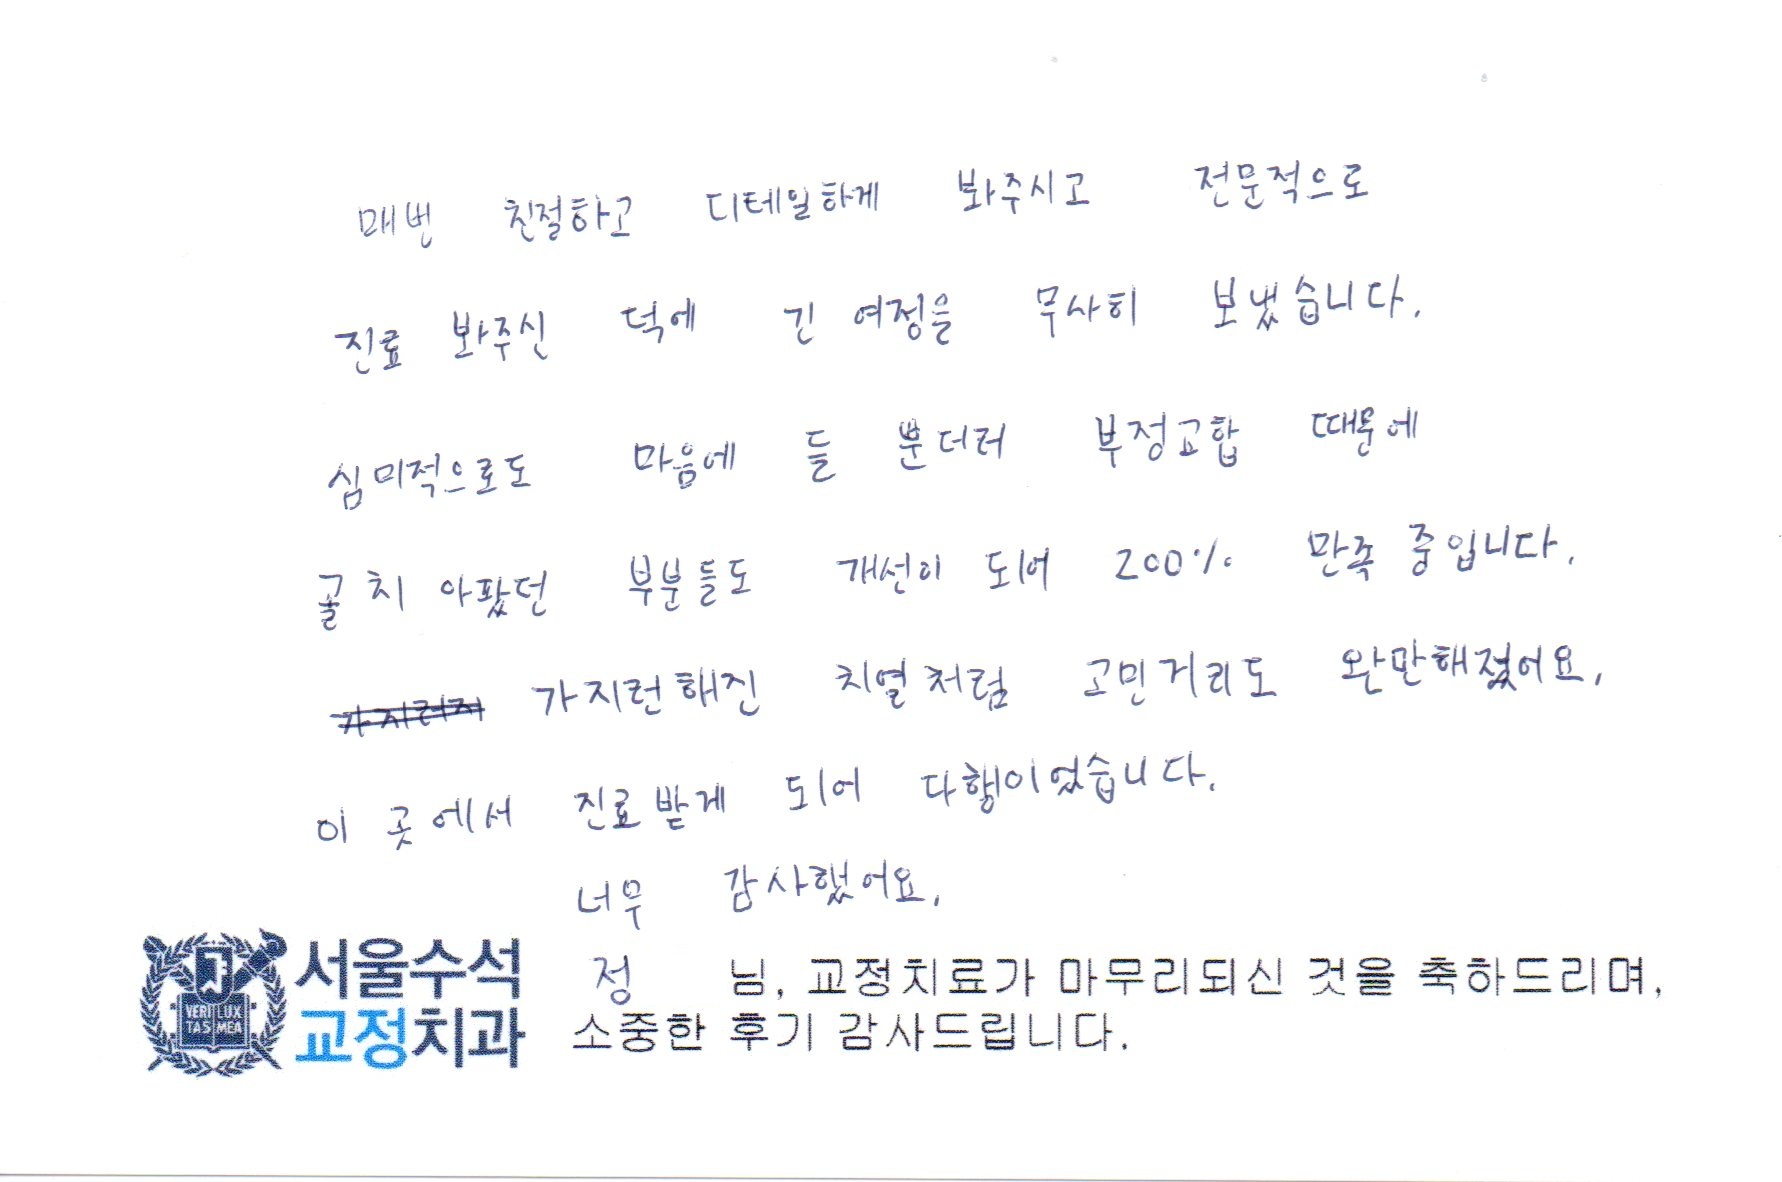 매번 친절하고 디테일하게 봐주시고 전문적으로
진료 봐주신 덕에 긴 여정을 무사히 보냈습니다.
심미적으로도 마음에 들 뿐더러 부정교합 때문에
골치 아팠던 부분들도 개선이 되어 200% 만족 중입니다.
가지러지 가지런해진 치열처럼 고민거리도 완만해졌어요.
이 곳에서 진료받게 되어 다행이었습니다.
너무 감사했어요.
정 님, 교정치료가 마무리되신 것을 축하드리며,
소중한 후기 감사드립니다.
서울수석
교정치과
VERI LUX
TAS MEA